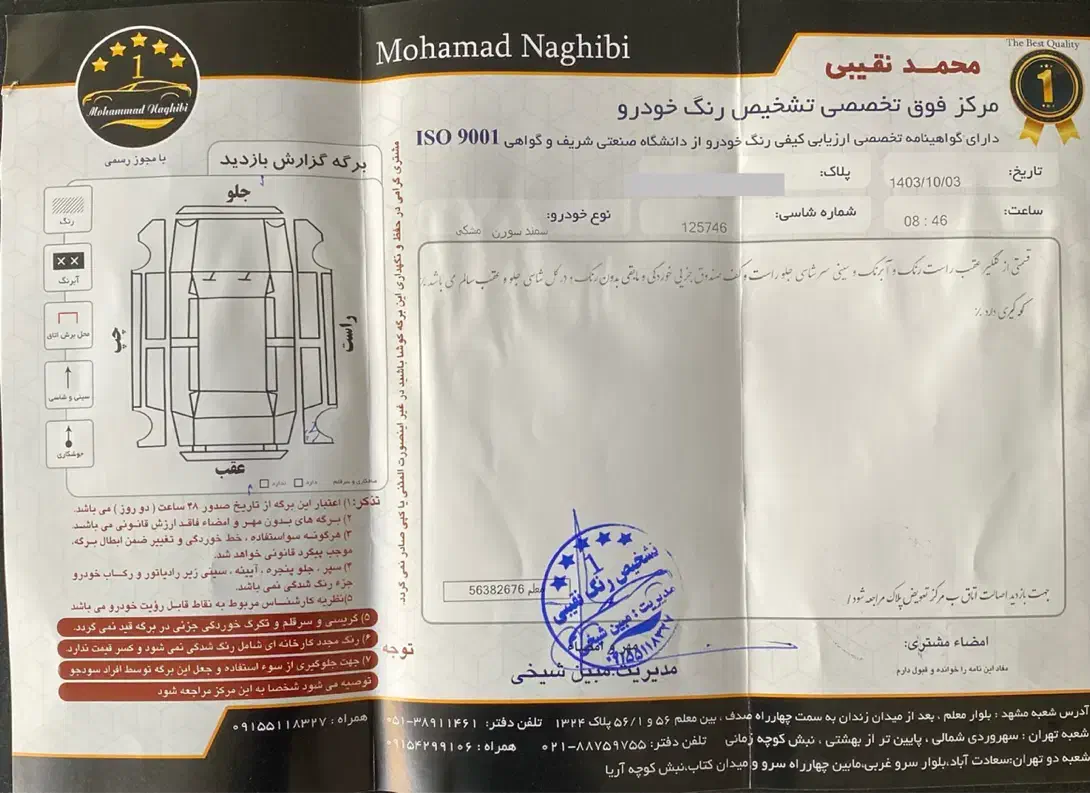 Mohamad Naghibi
The Best Quality
1
1
Mohammad Naghibi
با مجوز رسمی
محمد نقیبی
مرکز فوق تخصصی تشخیص رنگ خودرو
دارای گواهینامه تخصصی ارزیابی کیفی رنگ خودرو از دانشگاه صنعتی شریف و گواهی ISO 9001
تاریخ: 1403/10/03
پلاک:
ساعت: 08 : 46
شماره شاسی: 125746
نوع خودرو: سمند سورن مشکی
قسمتی از گلگیر عقب راست رنگ و آبرنگ و سینی سرشاسی جلو راست و کف صندوق جزیی خوردگی و مابقی بدون رنگ و در کل شاسی جلو و عقب سالم می باشد./
لکه گیری دارد./
معلم 56382676
جهت بازدید اصالت اتاق به مرکز تعویض پلاک مراجعه شود/
امضاء مشتری:
مفاد این نامه را خوانده و قبول دارم.
مهر و امضاء
مدیریت: مبین شیخی
1
تشخیص رنگ نقیبی
مدیریت: مبین شیخی
۰۹۱۵۵۱۱۸۳۲۷
برگه گزارش بازدید
جلو
چپ
راست
عقب
رنگ
آبرنگ
محل برش اتاق
سینی و شاسی
جوشکاری
دارد
ندارد
مشتری گرامی در حفظ و نگهداری این برگه کوشا باشید در غیر اینصورت المثنی یا کپی صادر نمی گردد.
تذکر: ۱) اعتبار این برگه از تاریخ صدور ۴۸ ساعت ( دو روز ) می باشد.
۲) برگه های بدون مهر و امضاء فاقد ارزش قانونی می باشد.
۳) هرگونه سواستفاده ، خط خوردگی و تغییر ضمن ابطال برگه،
موجب پیگرد قانونی خواهد شد.
۴) سپر ، جلو پنجره ، آیینه ، سینی زیر رادیاتور و رکاب خودرو
جزء رنگ شدگی نمی باشد.
۵)نظریه کارشناس مربوط به نقاط قابل رؤیت خودرو می باشد
۵) گریسی و سرقلم و تگرگ خوردگی جزئی در برگه قید نمی گردد.
۶) رنگ مجدد کارخانه ای شامل رنگ شدگی نمی شود و کسر قیمت ندارد.
۷) جهت جلوگیری از سوء استفاده و جعل این برگه توسط افراد سودجو
توصیه می شود شخصا به این مرکز مراجعه شود
توجه
همراه : ۰۹۱۵۵۱۱۸۳۲۷
آدرس شعبه مشهد : بلوار معلم ، بعد از میدان زندان به سمت چهارراه صدف ، بین معلم ۵۶ و ۵۶/۱ پلاک ۱۳۲۴ تلفن دفتر: ۳۸۹۱۱۴۶۱-۰۵۱
شعبه تهران : سهروردی شمالی ، پایین تر از بهشتی ، نبش کوچه زمانی تلفن دفتر: ۸۸۷۵۹۷۵۵-۰۲۱ همراه : ۰۹۱۵۴۲۹۹۱۰۶
شعبه دو تهران:سعادت آباد،بلوار سرو غربی،مابین چهارراه سرو و میدان کتاب،نبش کوچه آریا